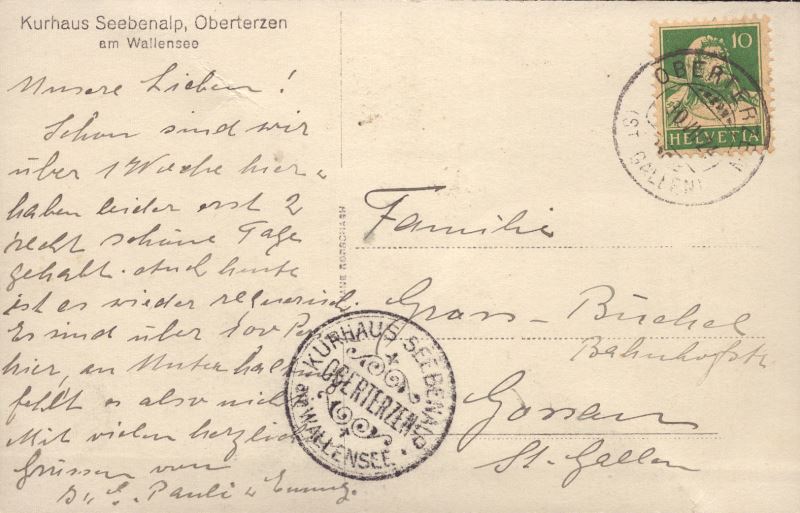 Kurhaus Seebenalp, Oberterzen
am Wallensee
Unsere Lieben!
Schon sind wir
über 1 Woche hier u
haben leider erst 2
recht schöne Tage
gehabt. Auch heute
ist es wieder regnerisch.
Es sind über 100 Per
hier, an Unterhaltung
fehlt es also nicht
Mit vielen herzlich
Grüssen von
Pauli u
10
HELVETIA
OBERTERZEN
(ST. GALLEN)
RORSCHACH
Familie
Grass-Büchel
Bahnhofstr
Gossau
St. Gallen
KURHAUS SEEBENALP
OBERTERZEN
WALLENSEE